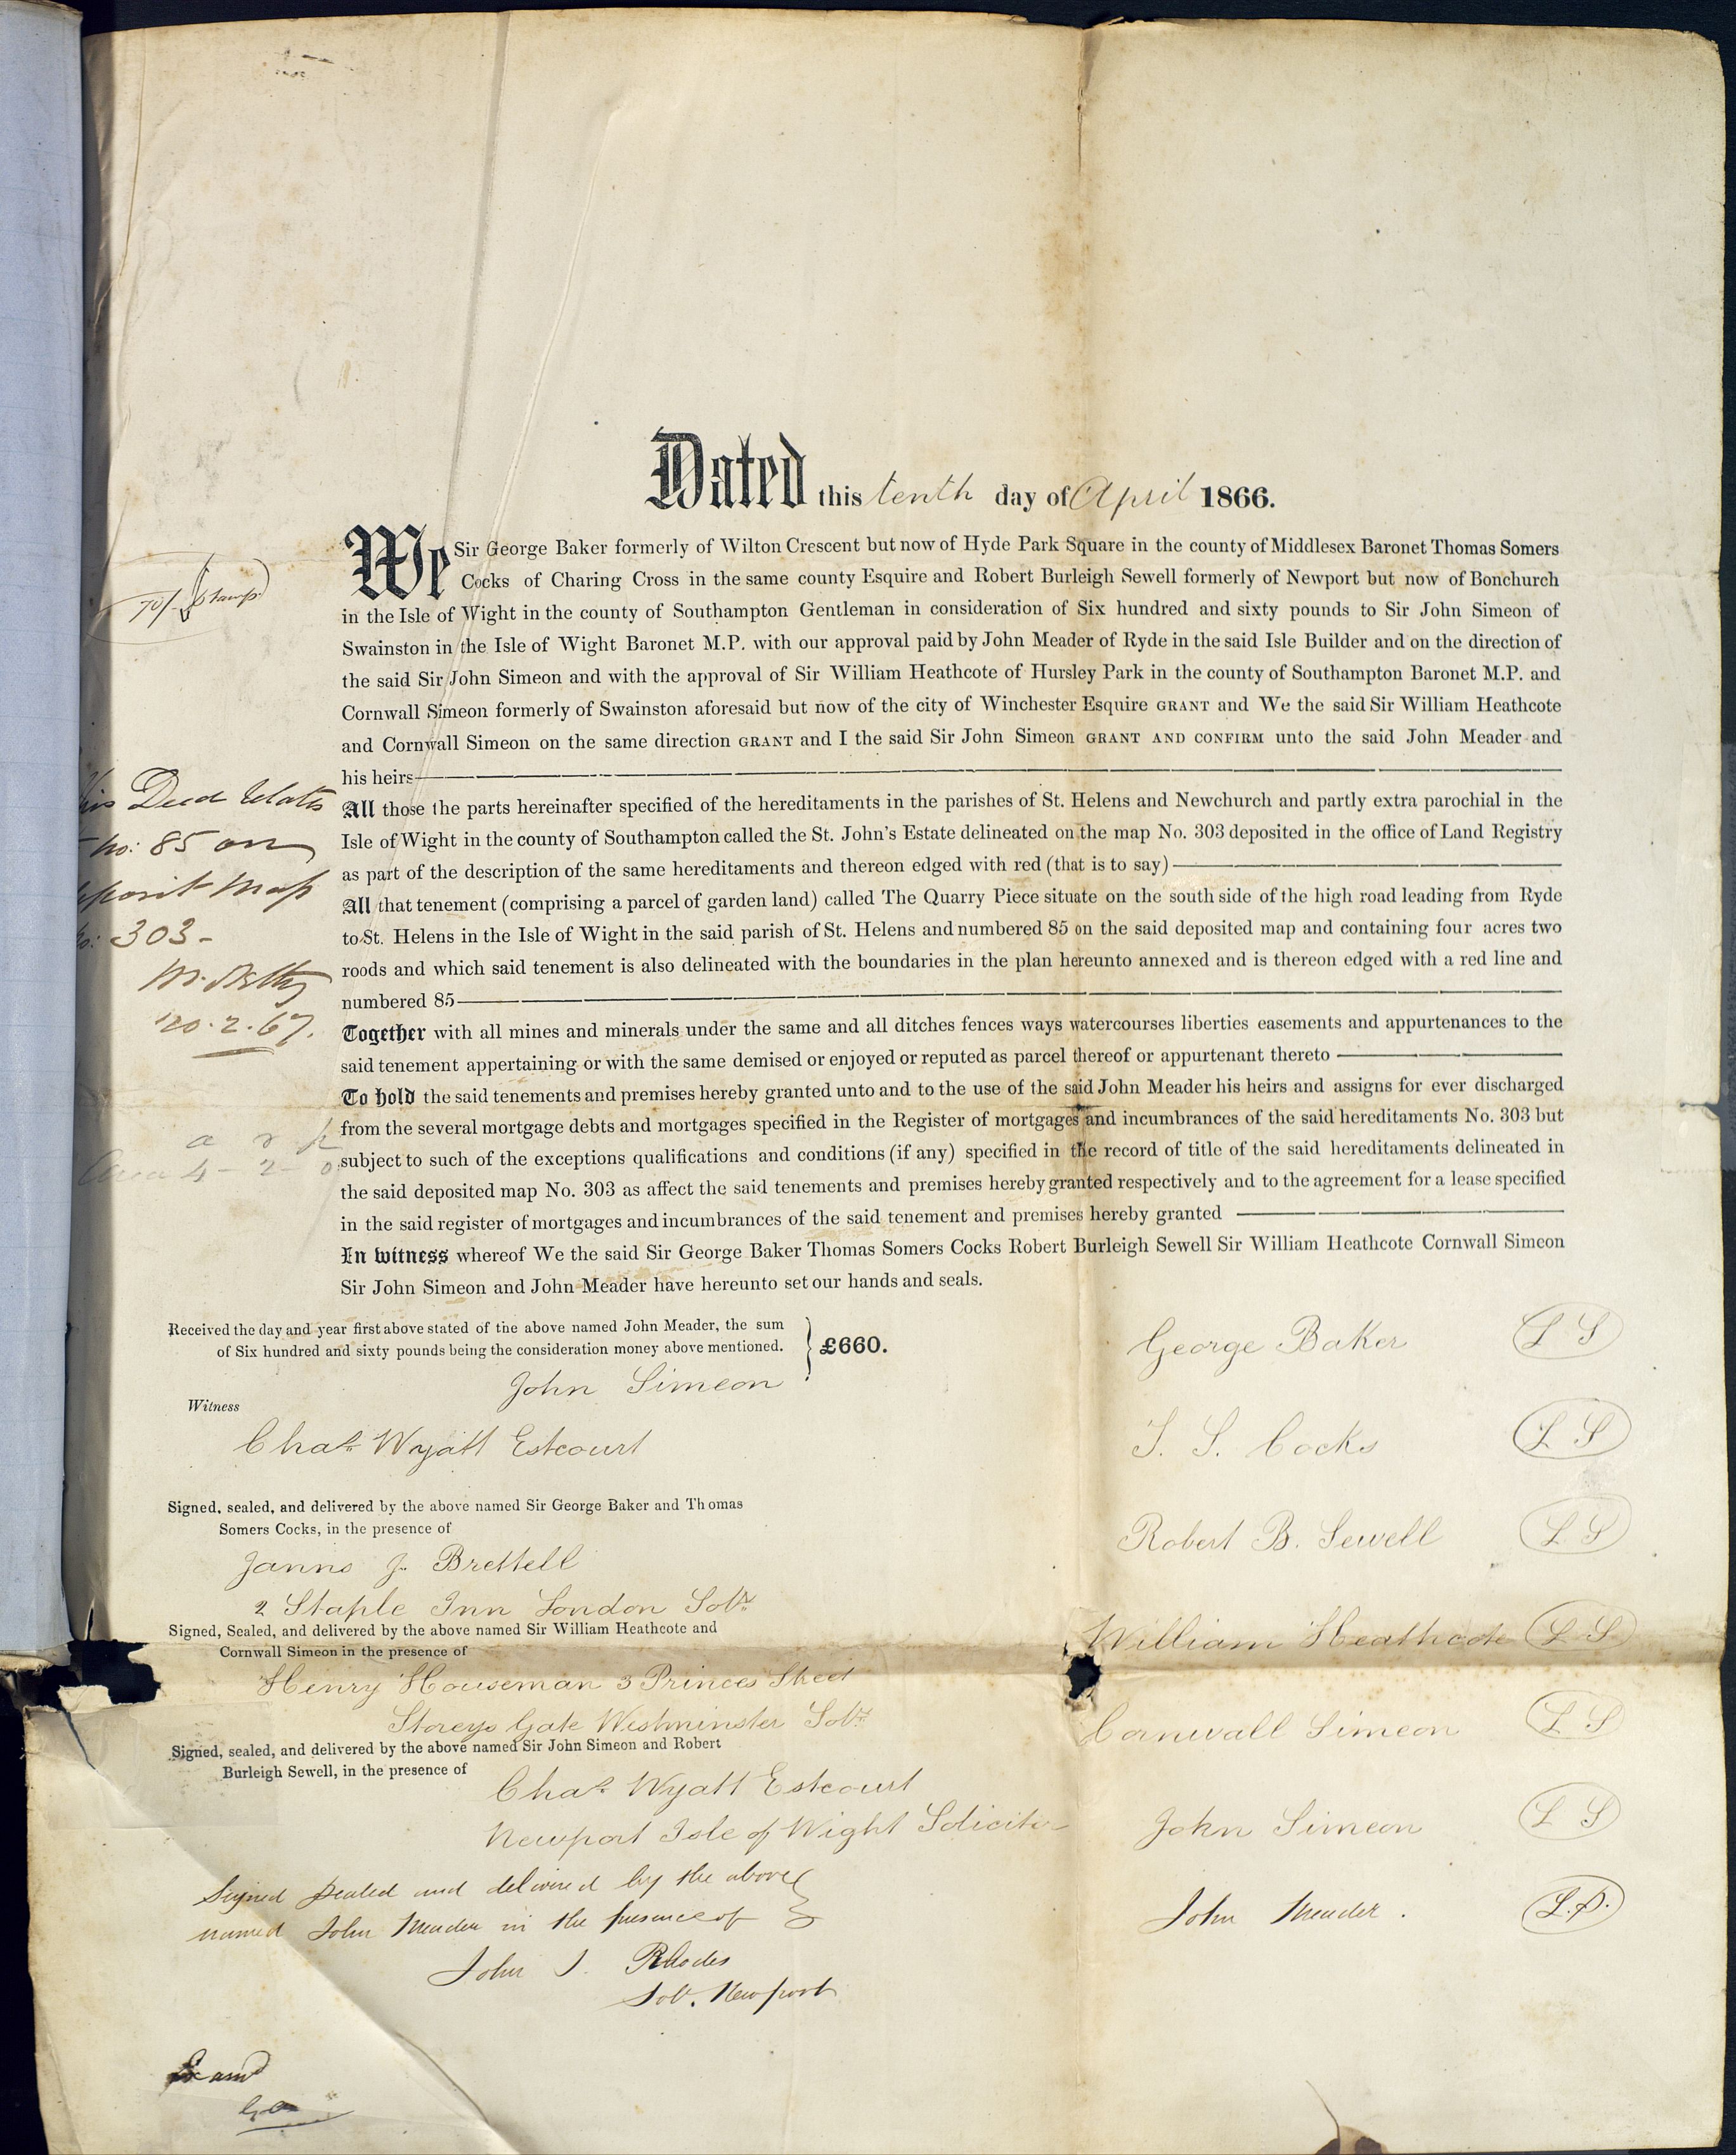 Dated this tenth day of April 1866.
We Sir George Baker formerly of Wilton Crescent but now of Hyde Park Square in the county of Middlesex Baronet Thomas Somers
Cocks of Charing Cross in the same county Esquire and Robert Burleigh Sewell formerly of Newport but now of Bonchurch
in the Isle of Wight in the county of Southampton Gentleman in consideration of Six hundred and sixty pounds to Sir John Simeon of
Swainston in the Isle of Wight Baronet M.P. with our approval paid by John Meader of Ryde in the said Isle Builder and on the direction of
the said Sir John Simeon and with the approval of Sir William Heathcote of Hursley Park in the county of Southampton Baronet M.P. and
Cornwall Simeon formerly of Swainston aforesaid but now of the city of Winchester Esquire GRANT and We the said Sir William Heathcote
and Cornwall Simeon on the same direction GRANT and I the said Sir John Simeon GRANT AND CONFIRM unto the said John Meader and
his heirs
All those the parts hereinafter specified of the hereditaments in the parishes of St. Helens and Newchurch and partly extra parochial in the
Isle of Wight in the county of Southampton called the St. John's Estate delineated on the map No. 303 deposited in the office of Land Registry
as part of the description of the same hereditaments and thereon edged with red (that is to say)
All that tenement (comprising a parcel of garden land) called The Quarry Piece situate on the south side of the high road leading from Ryde
to St. Helens in the Isle of Wight in the said parish of St. Helens and numbered 85 on the said deposited map and containing four acres two
roods and which said tenement is also delineated with the boundaries in the plan hereunto annexed and is thereon edged with a red line and
numbered 85
Together with all mines and minerals under the same and all ditches fences ways watercourses liberties easements and appurtenances to the
said tenement appertaining or with the same demised or enjoyed or reputed as parcel thereof or appurtenant thereto
To hold the said tenements and premises hereby granted unto and to the use of the said John Meader his heirs and assigns for ever discharged
from the several mortgage debts and mortgages specified in the Register of mortgages and incumbrances of the said hereditaments No. 303 but
subject to such of the exceptions qualifications and conditions (if any) specified in the record of title of the said hereditaments delineated in
the said deposited map No. 303 as affect the said tenements and premises hereby granted respectively and to the agreement for a lease specified
in the said register of mortgages and incumbrances of the said tenement and premises hereby granted
In witness whereof We the said Sir George Baker Thomas Somers Cocks Robert Burleigh Sewell Sir William Heathcote Cornwall Simeon
Sir John Simeon and John Meader have hereunto set our hands and seals.
70/- Stamp
Deed relates
no: 85 on
Map
303-
20.2.67.
a r p
Area 4 - 2 - 0
Received the day and year first above stated of the above named John Meader, the sum
of Six hundred and sixty pounds being the consideration money above mentioned. £660.
John Simeon
Witness
Chas. Wyatt Estcourt
Signed, sealed, and delivered by the above named Sir George Baker and Thomas
Somers Cocks, in the presence of
J. Brettell
2 Staple Inn London Solr.
Signed, Sealed, and delivered by the above named Sir William Heathcote and
Cornwall Simeon in the presence of
Henry Houseman 3 Princes Street
Storeys Gate Westminster Solr.
Signed, sealed, and delivered by the above named Sir John Simeon and Robert
Burleigh Sewell, in the presence of
Chas. Wyatt Estcourt
Newport Isle of Wight Solicitor
Signed sealed and delivered by the above
named John Meader in the presence of
John J. Rhodes
Solr. Newport
George Baker L S
T. S. Cocks L S
Robert B. Sewell L S
William Heathcote L S
Cornwall Simeon L S
John Simeon L S
John Meader. L.S.